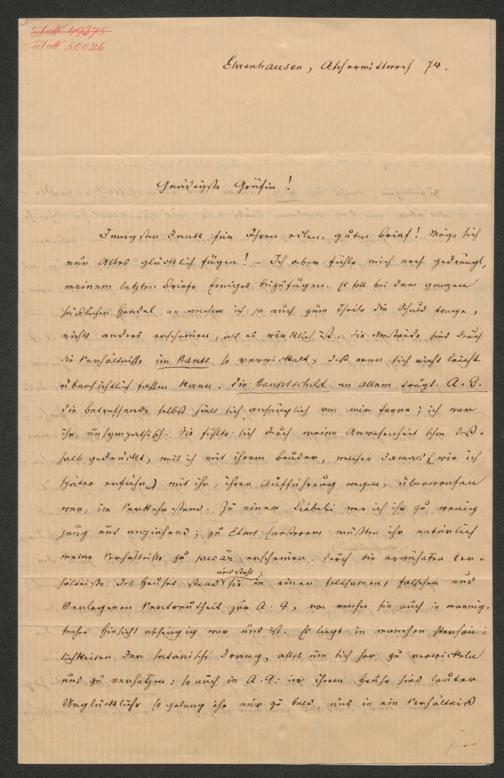 I.N. 49275
I.N. 50026
Ehrenhausen, Aschermittwoch 74.
Gnädigste Gräfin!
Innigsten Dank für Ihren edlen, guten Brief! Möge sich
nun Alles glücklich fügen! – Ich aber fühle mich noch gedrängt,
meinem letzten Briefe Einiges beizufügen. Es soll bei dem ganzen
häßlichen Handel an welchem ich ja auch zum Theile die Schuld trage,
nichts anders erscheinen, als es wirklich ist. Die Umstände sind durch
die Verhältnisse im Hause so verwickelt, daß man sich nicht leicht
übersichtlich fassen kann. Die Hauptschuld an allem trägt A. G.
Die betreffende selbst hielt sich anfänglich von mir ferne; ich war
ihr unsympathisch. Sie fühlte sich durch meine Anwesenheit schon deß-
halb gedrückt, weil ich mit ihrem Bruder, welcher damals (wie ich
später erfuhr) mit ihr, ihrer Aufführung wegen, überworfen
war, im Verkehr stand. Zu einem Liebeln war ich ihr zu wenig
jung und anziehend; zu Etwas Ernsterem mußten ihr natürlich
meine Verhältnisse zu precär erscheinen. Durch die erwähnten Ver-
hältnisse des Hauses stand und steht sie in einer seltsamen, falschen und
verlogenen Vertrautheit zur A. G., von welcher sie auch in mancher
Hinsicht abhängig war und ist. Es liegt in manchen Persön-
lichkeiten der satanische Drang, alles um sich her zu verwickeln
und zu verhetzen: so auch in A. G.: in ihrem Hause sind lauter
Unglückliche. So gelang ihr nur zu bald, uns in ein Verhältniß